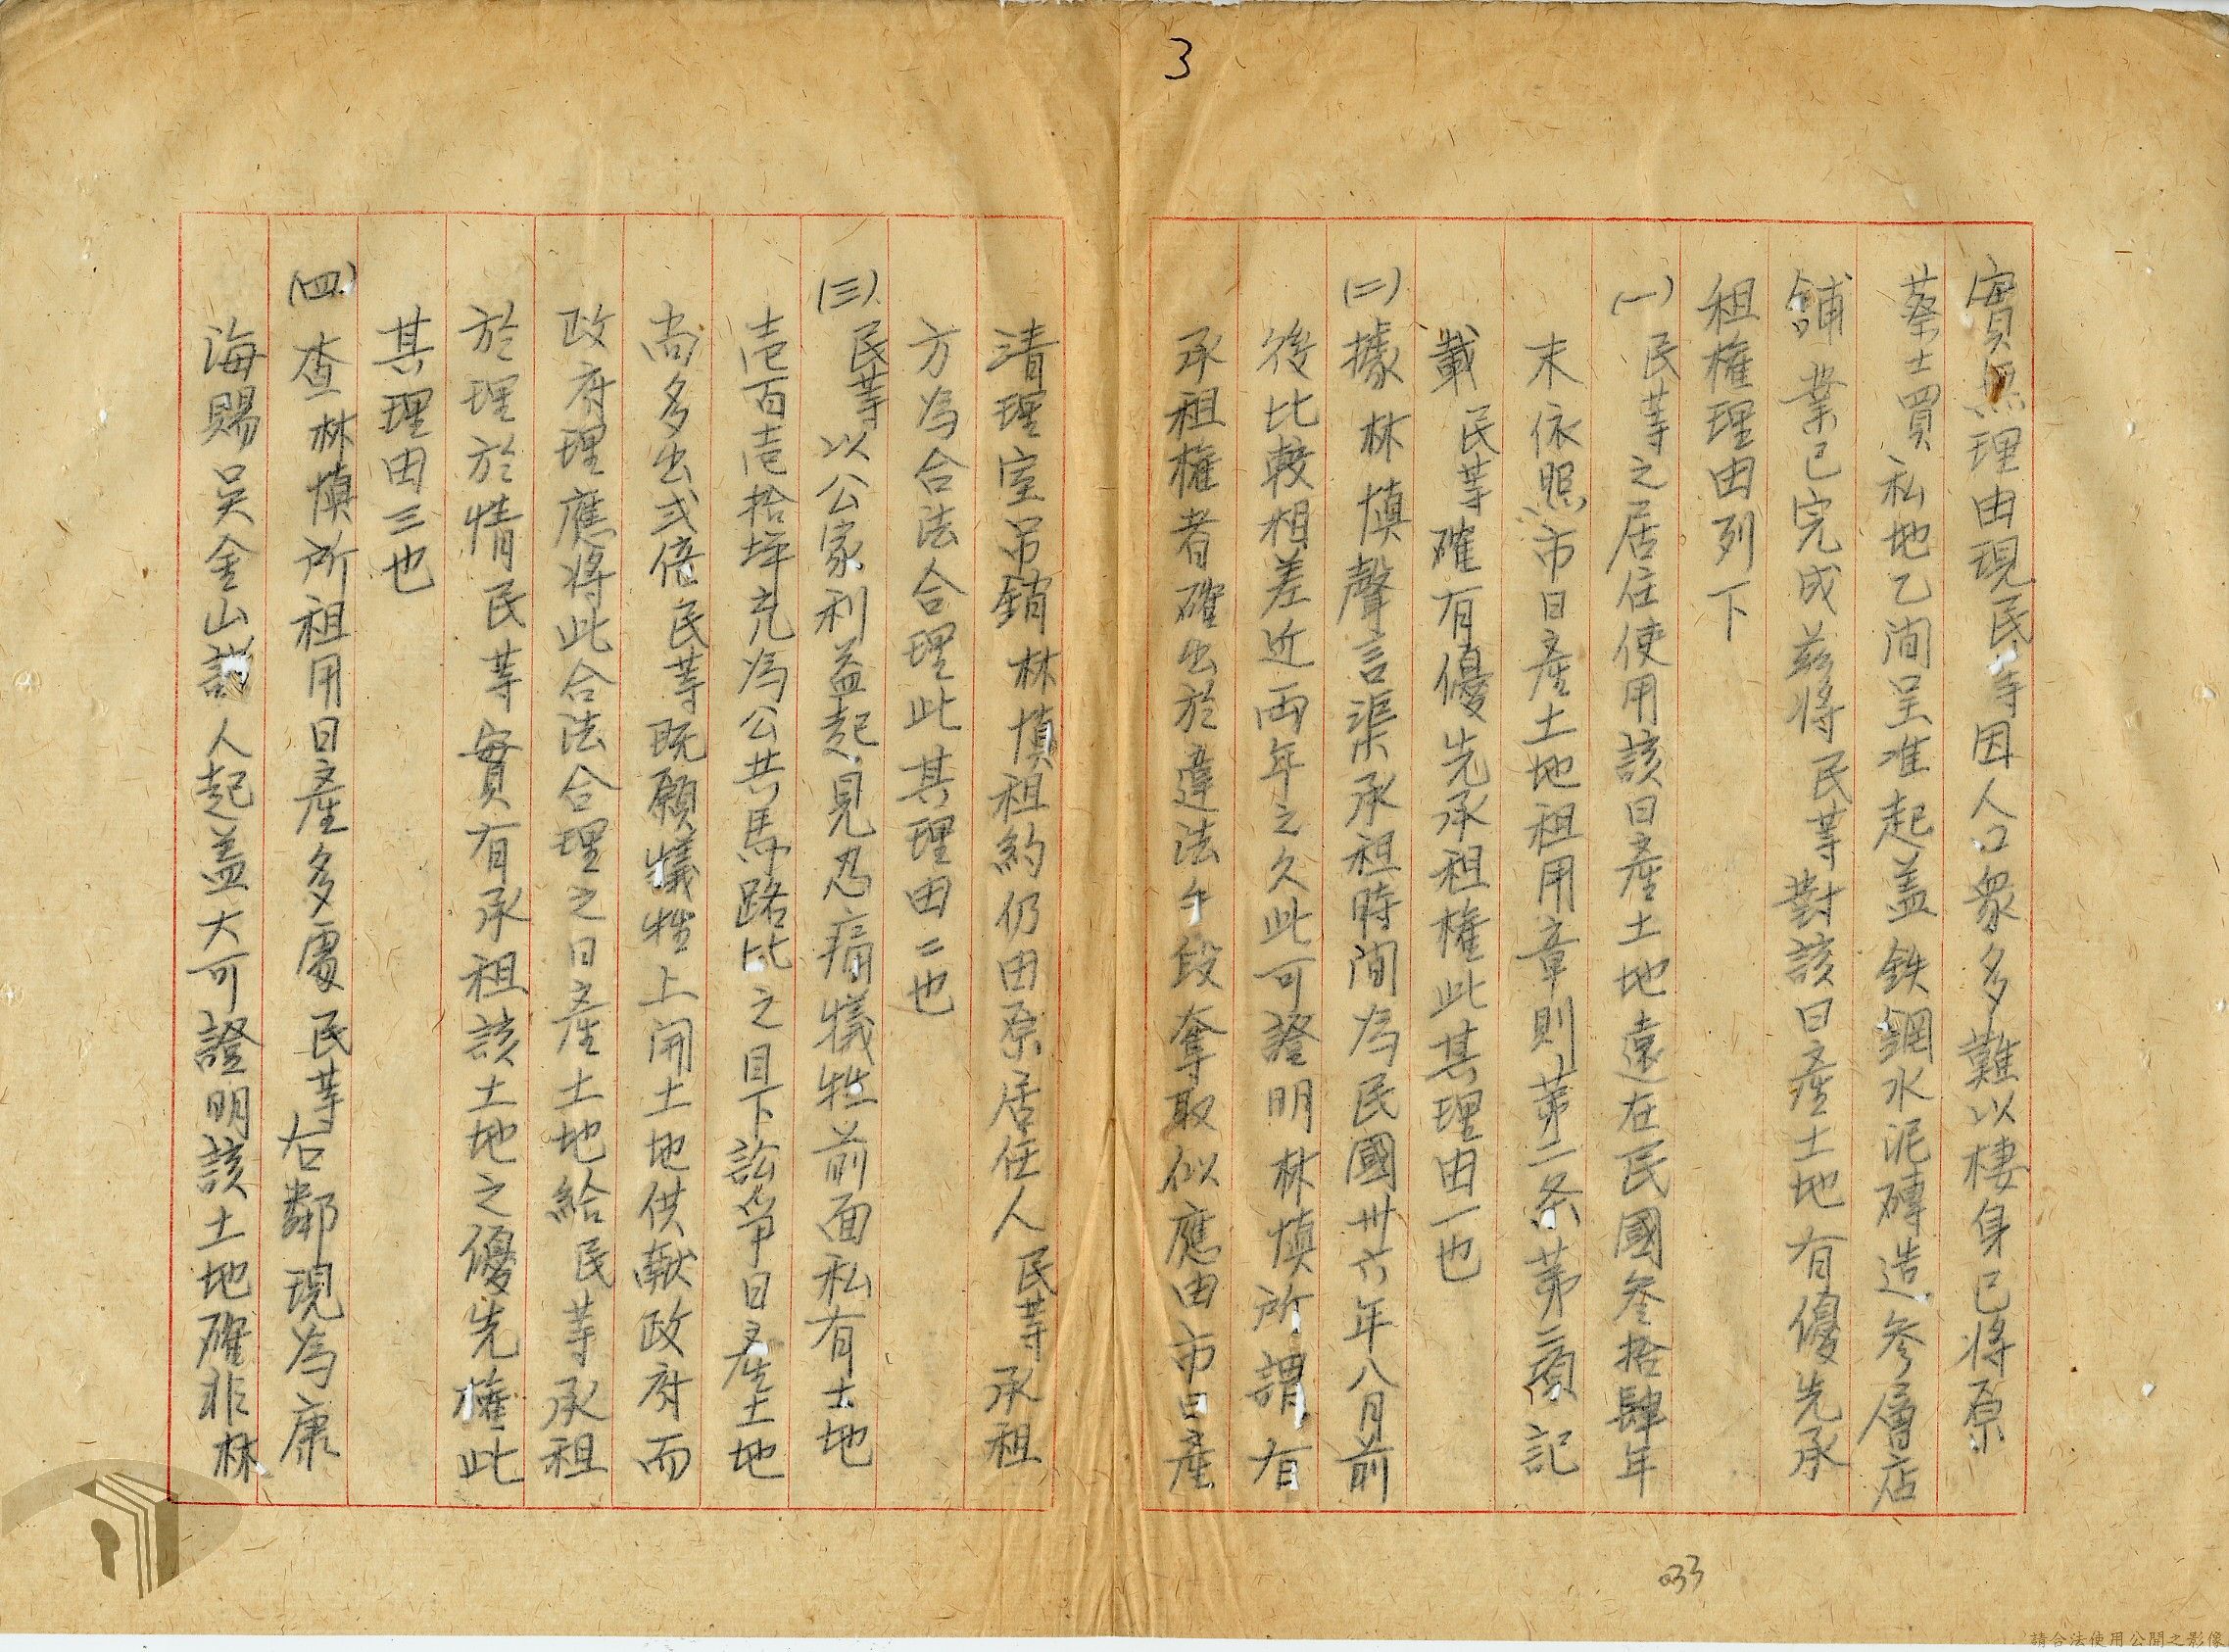 3
實無理由現民等因人口衆多難以棲身已將原
蔡士買私地乙间呈准起盖鉄鋼水泥磚造参層店
舖業已完成茲將民等對該日產土地有優先承
租權理由列下
(一)民等之居住使用該日產土地遠在民國叁拾肆年
末依照市日產土地租用章則第二条第二項記
載民等確有優先承租權此其理由一也
(二)據林慎聲言渠承租時間為民國卅六年八月前
後比較相差近両年之久此可證明林慎所謂有
承租權者確出於違法手段奪取似應由市日產
清理室吊銷林慎租約仍由原居住人民等承租
方為合法合理此其理由二也
(三)民等以公家利益起見忍痛犠牲前面私有土地
壱百壱拾坪充為公共馬路比之目下訟爭日產土地
尚多出弍倍民等既願犠牲上開土地供献政府而
政府理應將此合法合理之日產土地給民等承租
於理於情民等實有承租該土地之優先權此
其理由三也
(四)查林慎所租用日產多處民等右鄰現為康
海賜吳金山 人起盖大可證明該土地確非林
033
請合法使用公開之影像